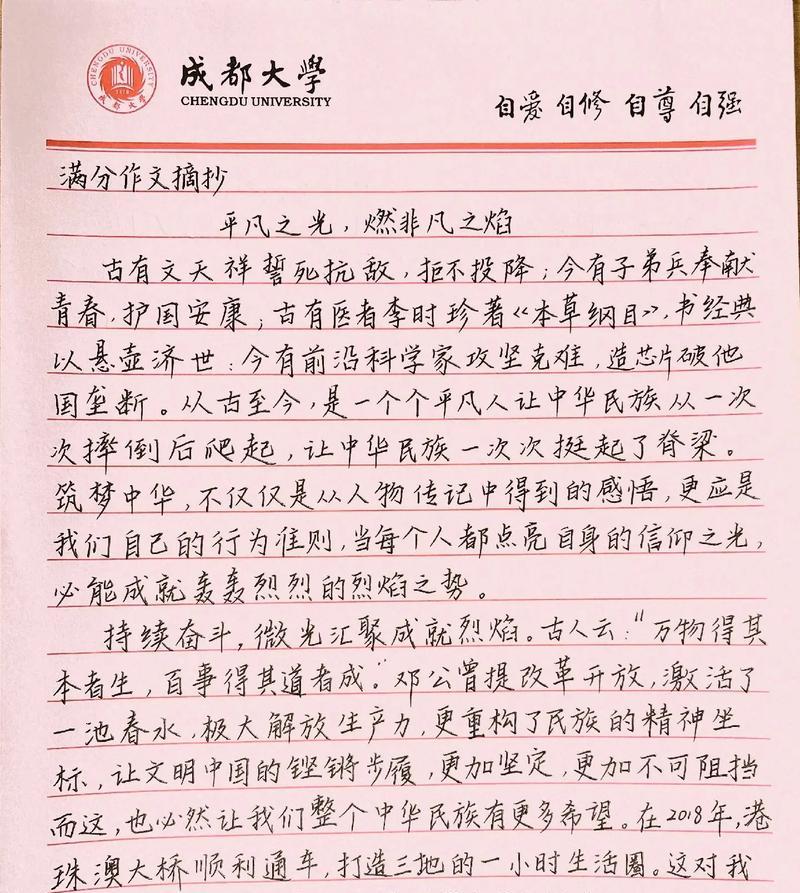 CHENGDU UNIVERSITY
成都大学
成都大学
CHENGDU UNIVERSITY
自爱 自修 自尊 自强
满分作文摘抄
平凡之光，燃非凡之焰
古有文天祥誓死抗敌，拒不投降；今有子弟兵奉献
青春，护国安康；古有医者李时珍著《本草纲目》，书经典
以悬壶济世；今有前沿科学家攻坚克难，造芯片破他
国垄断。从古至今，是一个个平凡人让中华民族从一次
次摔倒后爬起，让中华民族一次次挺起了脊梁。
筑梦中华，不仅仅是从人物传记中得到的感悟，更应是
我们自己的行为准则，当每个人都点亮自身的信仰之光，
必能成就轰轰烈烈的烈焰之势。
持续奋斗，微光汇聚成就烈焰。古人云："万物得其
本者生，百事得其道者成。"邓公曾提改革开放，激活了
一池春水，极大解放生产力，更重构了民族的精神坐
标，让文明中国的铿锵步履，更加坚定，更加不可阻挡
而这，也必然让我们整个中华民族有更多希望。在2018年，港
珠澳大桥顺利通车，打造三地的一小时生活圈。这对我